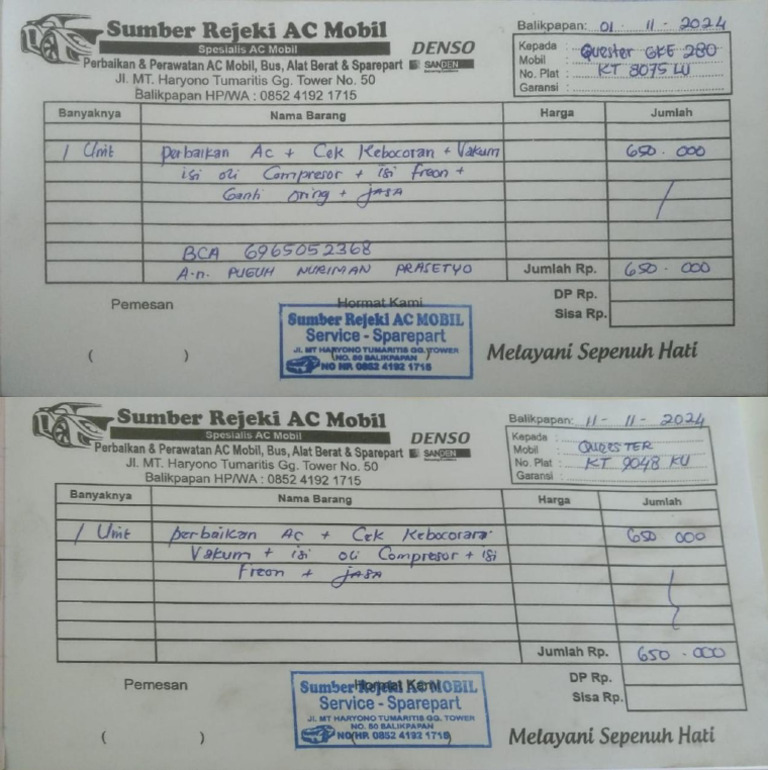 Sumber Rejeki AC Mobil
Spesialis AC Mobil
Perbaikan & Perawatan AC Mobil, Bus, Alat Berat & Sparepart
DENSO
SANDEN
Jl. MT. Haryono Tumaritis Gg. Tower No. 50
Balikpapan HP/WA : 0852 4192 1715
Balikpapan: 01 - 11 - 2024
Kepada :
Mobil : Quester GKE 280
No. Plat : KT 8075 LU
Garansi :
Banyaknya Nama Barang Harga Jumlah
1 Unit perbaikan Ac + Cek Kebocoran + Vakum 650.000
isi oli Compresor + isi freon +
Ganti oring + jASA
BCA 6965052368
A.n. PUGUH NURIMAN PRASETYO Jumlah Rp. 650.000
DP Rp.
Sisa Rp.
Pemesan Hormat Kami
Sumber Rejeki AC MOBIL
Service - Sparepart
JL. MT HARYONO TUMARITIS GG. TOWER
NO. 50 BALIKPAPAN
NO HP. 0852 4192 1715
( )
Melayani Sepenuh Hati
Sumber Rejeki AC Mobil
Spesialis AC Mobil
Perbaikan & Perawatan AC Mobil, Bus, Alat Berat & Sparepart
DENSO
SANDEN
Jl. MT. Haryono Tumaritis Gg. Tower No. 50
Balikpapan HP/WA : 0852 4192 1715
Balikpapan: 11 - 11 - 2024
Kepada :
Mobil : QUESTER
No. Plat : KT 9048 KU
Garansi :
Banyaknya Nama Barang Harga Jumlah
1 Unit perbaikan Ac + Cek Kebocoran 650 000
Vakum + isi oli Compresor + isi
Freon + jASA
Jumlah Rp. 650.000
DP Rp.
Sisa Rp.
Pemesan Hormat Kami
Sumber Rejeki AC MOBIL
Service - Sparepart
JL. MT HARYONO TUMARITIS GG. TOWER
NO. 50 BALIKPAPAN
NO HP. 0852 4192 1715
( )
Melayani Sepenuh Hati